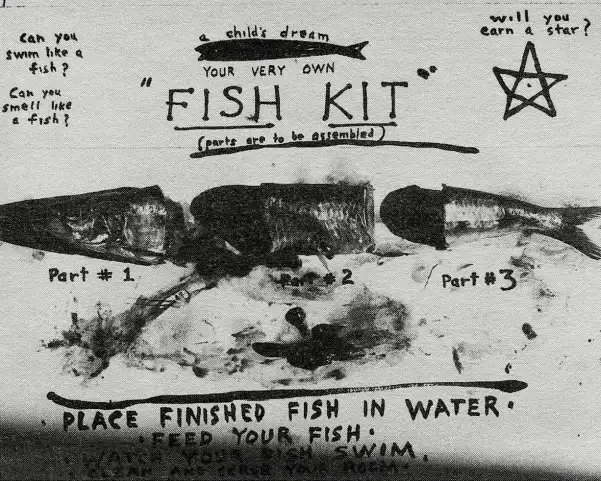 Can you
swim like a
fish?
Can you
smell like
a fish?
a child's dream
YOUR VERY OWN
"FISH KIT"
(parts are to be assembled)
will you
earn a star?
Part # 1
Part # 2
Part # 3
PLACE FINISHED FISH IN WATER.
· FEED YOUR FISH ·
· WATCH YOUR FISH SWIM.
· CLEAN AND YOUR ROOM ·